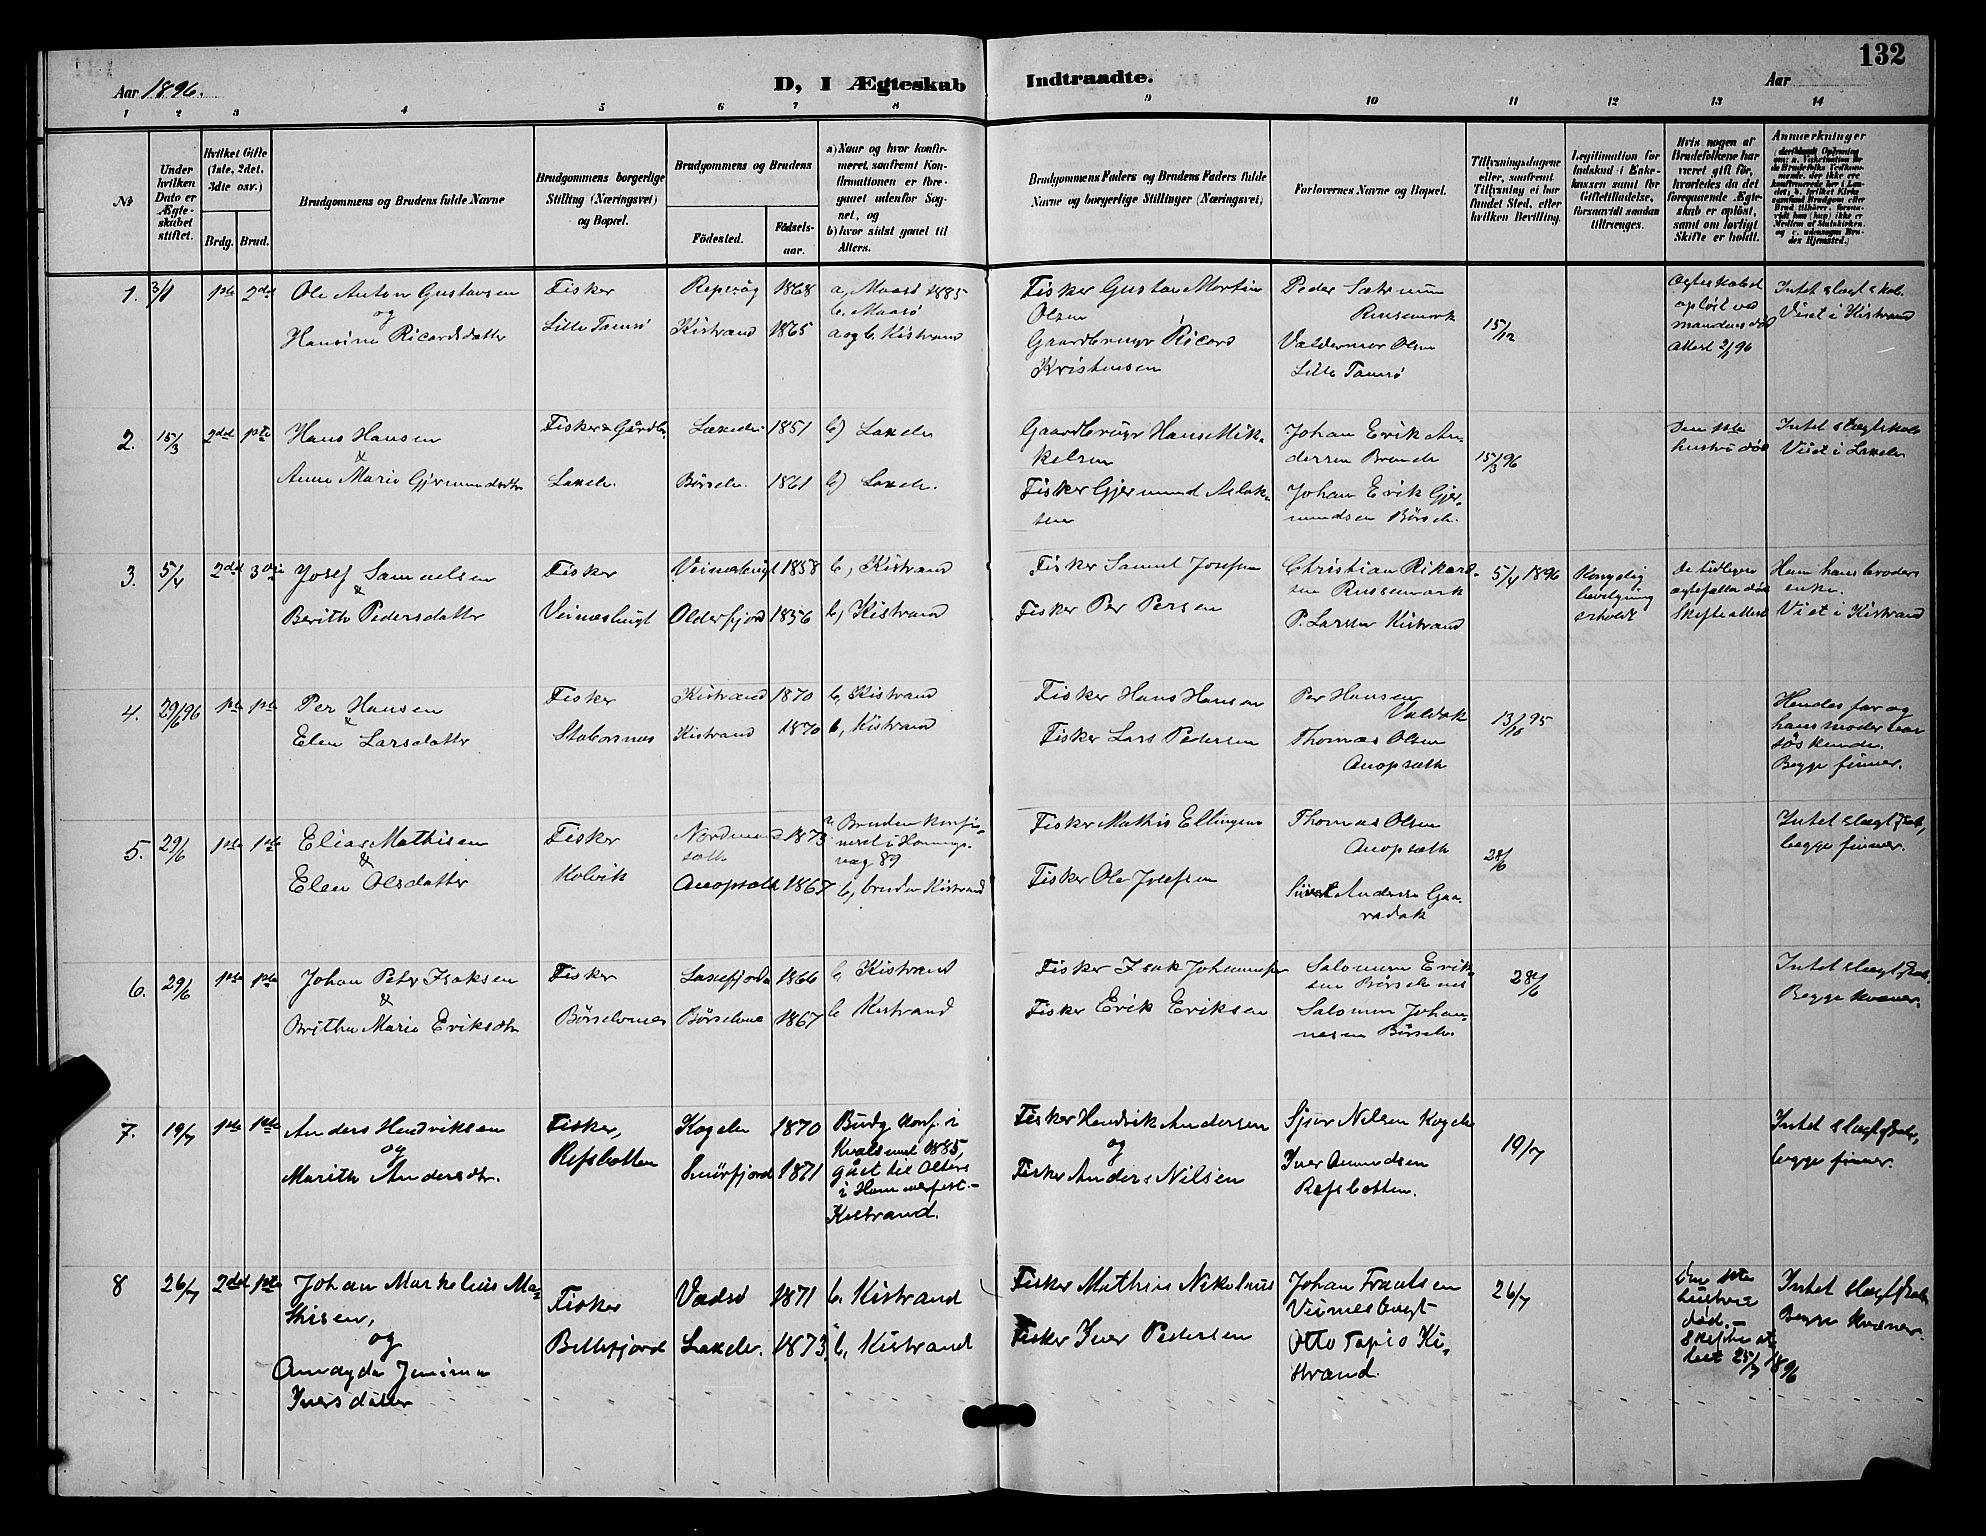 132
Aar 1896.
D, I Ægteskab Indtraadte.
Aar
1 2 3 4 5 6 7 8 9 10 11 12 13 14
No
Under hvilken Dato er Ægteskabet stiftet.
Hvilket Gifte (1ste, 2det, 3die osv.)
Brdg. Brud.
Brudgommens og Brudens fulde Navne
Brudgommens borgerlige Stilling (Næringsvei) og Bopæl.
Brudgommens og Brudens
Fødested.
Fødsels-aar.
a) Naar og hvor konfirmeret, saafremt Konfirmationen er foregaaet udenfor Sognet, og
b) hvor sidst gaaet til Alters.
Brudgommens Faders og Brudens Faders fulde Navne og borgerlige Stillinger (Næringsvei)
Forlovernes Navne og Bopæl.
Tillysningsdagene eller, saafremt Tillysning ei har fundet Sted, efter hvilken Bevilling.
Legitimation for Indskud i Enkekassen samt for Giftetilladelse, forsaavidt saadan tiltrænges.
Hvis nogen af Brudefolkene har været gift før, hvorledes da det foregaaende Ægteskab er opløst, samt om lovligt Skifte er holdt.
Anmærkninger
1. 3/1 1ste 2det
Ole Anton Gustavsen
og
Hansine Ricardsdatter
Fisker
Lille Tamsø
Repvåg 1868
Kistrand 1865
a, Maasø 1885
b. Maasø
a og b. Kistrand
Fisker Gustav Martin
Olsen
Gaardbruger Ricard
Kristensen
Peder Sætrum
Russemark
Valdemar Olsen
Lille Tamsø
15/12
Ægteskabet
opløst ved
mandens død
Attest 2/1 96
Intet slægtskab.
Viet i Kistrand
2. 15/3 2det 1ste
Hans Hansen
&
Anne Marie Gjermundsdatter
Fisker & Gårdbr.
Laxelv.
Laxelv 1851
Børselv. 1861
b) Laxelv
b) Laxelv.
Gaardbruger Hans Mik-
kelsen
Fisker Gjermund Aslak-
sen
Johan Erik An-
dersen Brændelv
Johan Erik Gjer-
mundsen Børselv.
15/3 96
Den 1ste
hustru død
Intet slægtskab
Viet i Laxelv
3. 5/4 2det 3die
Josef Samuelsen
&
Berith Pedersdatter
Fisker
Veinesbugt
Veinesbugt 1858
Olderfjord 1856
b, Kistrand
b, Kistrand
Fisker Samul Josefsen
Fisker Per Persen
Christian Rikard-
sen Russemark
P. Larssen Kistrand
5/4 1896
Kongelig
bevilgning
erholdt
De tidligere
ægtefæller død
Skifteattest
Hun hans broders
enke.
Viet i Kistrand
4. 29/6 96 1ste 1ste
Per Hansen
&
Elen Larsdatter
Fisker
Stabersnes
Kistrand 1870
Kistrand 1870
b, Kistrand
b, Kistrand
Fisker Hans Hansen
Fisker Lars Pedersen
Per Hansen
Valdak
Thomas Olsen
Anopsæth
13/10 95
Hendes far og
hans moder var
søskende.
Begge finner.
5. 29/6 1ste 1ste
Elias Mathisen
&
Elen Olsdatter
Fisker
Kolvik
Nordmans-
sæth 1873
Anopsæth 1867
a Bruden konfir-
meret i Honnings-
vaag 89
b, bruden Kistrand
Fisker Mathis Ellingsen
Fisker Ole Josefsen
Thomas Olsen
Anopsæth
Sivert Andersen Gaa-
radak
28/6
Intet slægtskab,
begge finner.
6. 29/6 1ste 1ste
Johan Peter Isaksen
&
Brithe Marie Eriksdtr
Fisker
Børselvnes
Laxefjord 1866
Børselvnes 1867
b Kistrand
b Kistrand
Fisker Isak Johannesen
Fisker Erik Eriksen
Salomon Erik-
sen Børselvnes
Salomon Johan-
nesen Børselv.
28/6
Intet slægtskab.
Begge kvæner.
7. 19/7 1ste 1ste
Anders Hendriksen
og
Marith Andersdtr.
Fisker,
Refsbotten
Kogelv 1870
Snørfjord 1871
Brudg konf. i
Kvalsund 1885,
gået til Alters
i Hammerfest.-
Kistrand.
Fisker Hendrik Andersen
og
Fisker Anders Nilsen
Sjur Nilsen Kogelv
Iver Amundsen
Refsbotten.
19/7
Intet slægtskab,
begge finner.
8 26/7 2det 1ste
Johan Markelius Ma-
thisen,
og
Amagda Jensine
Iversdatter
Fisker
Billefjord
Vadsø 1871
Laxelv. 1873
b, Kistrand
b, Kistrand
Fisker Mathis Nikolaus
Fisker Iver Pedersen
Johan Frantsen
Veinesbugt
Otto Tapio Ki-
strand.
26/7
Den 1ste
hustru
død.-
Skifteat-
test 25/7 1896
Intet slægtskab
Begge kvæner.